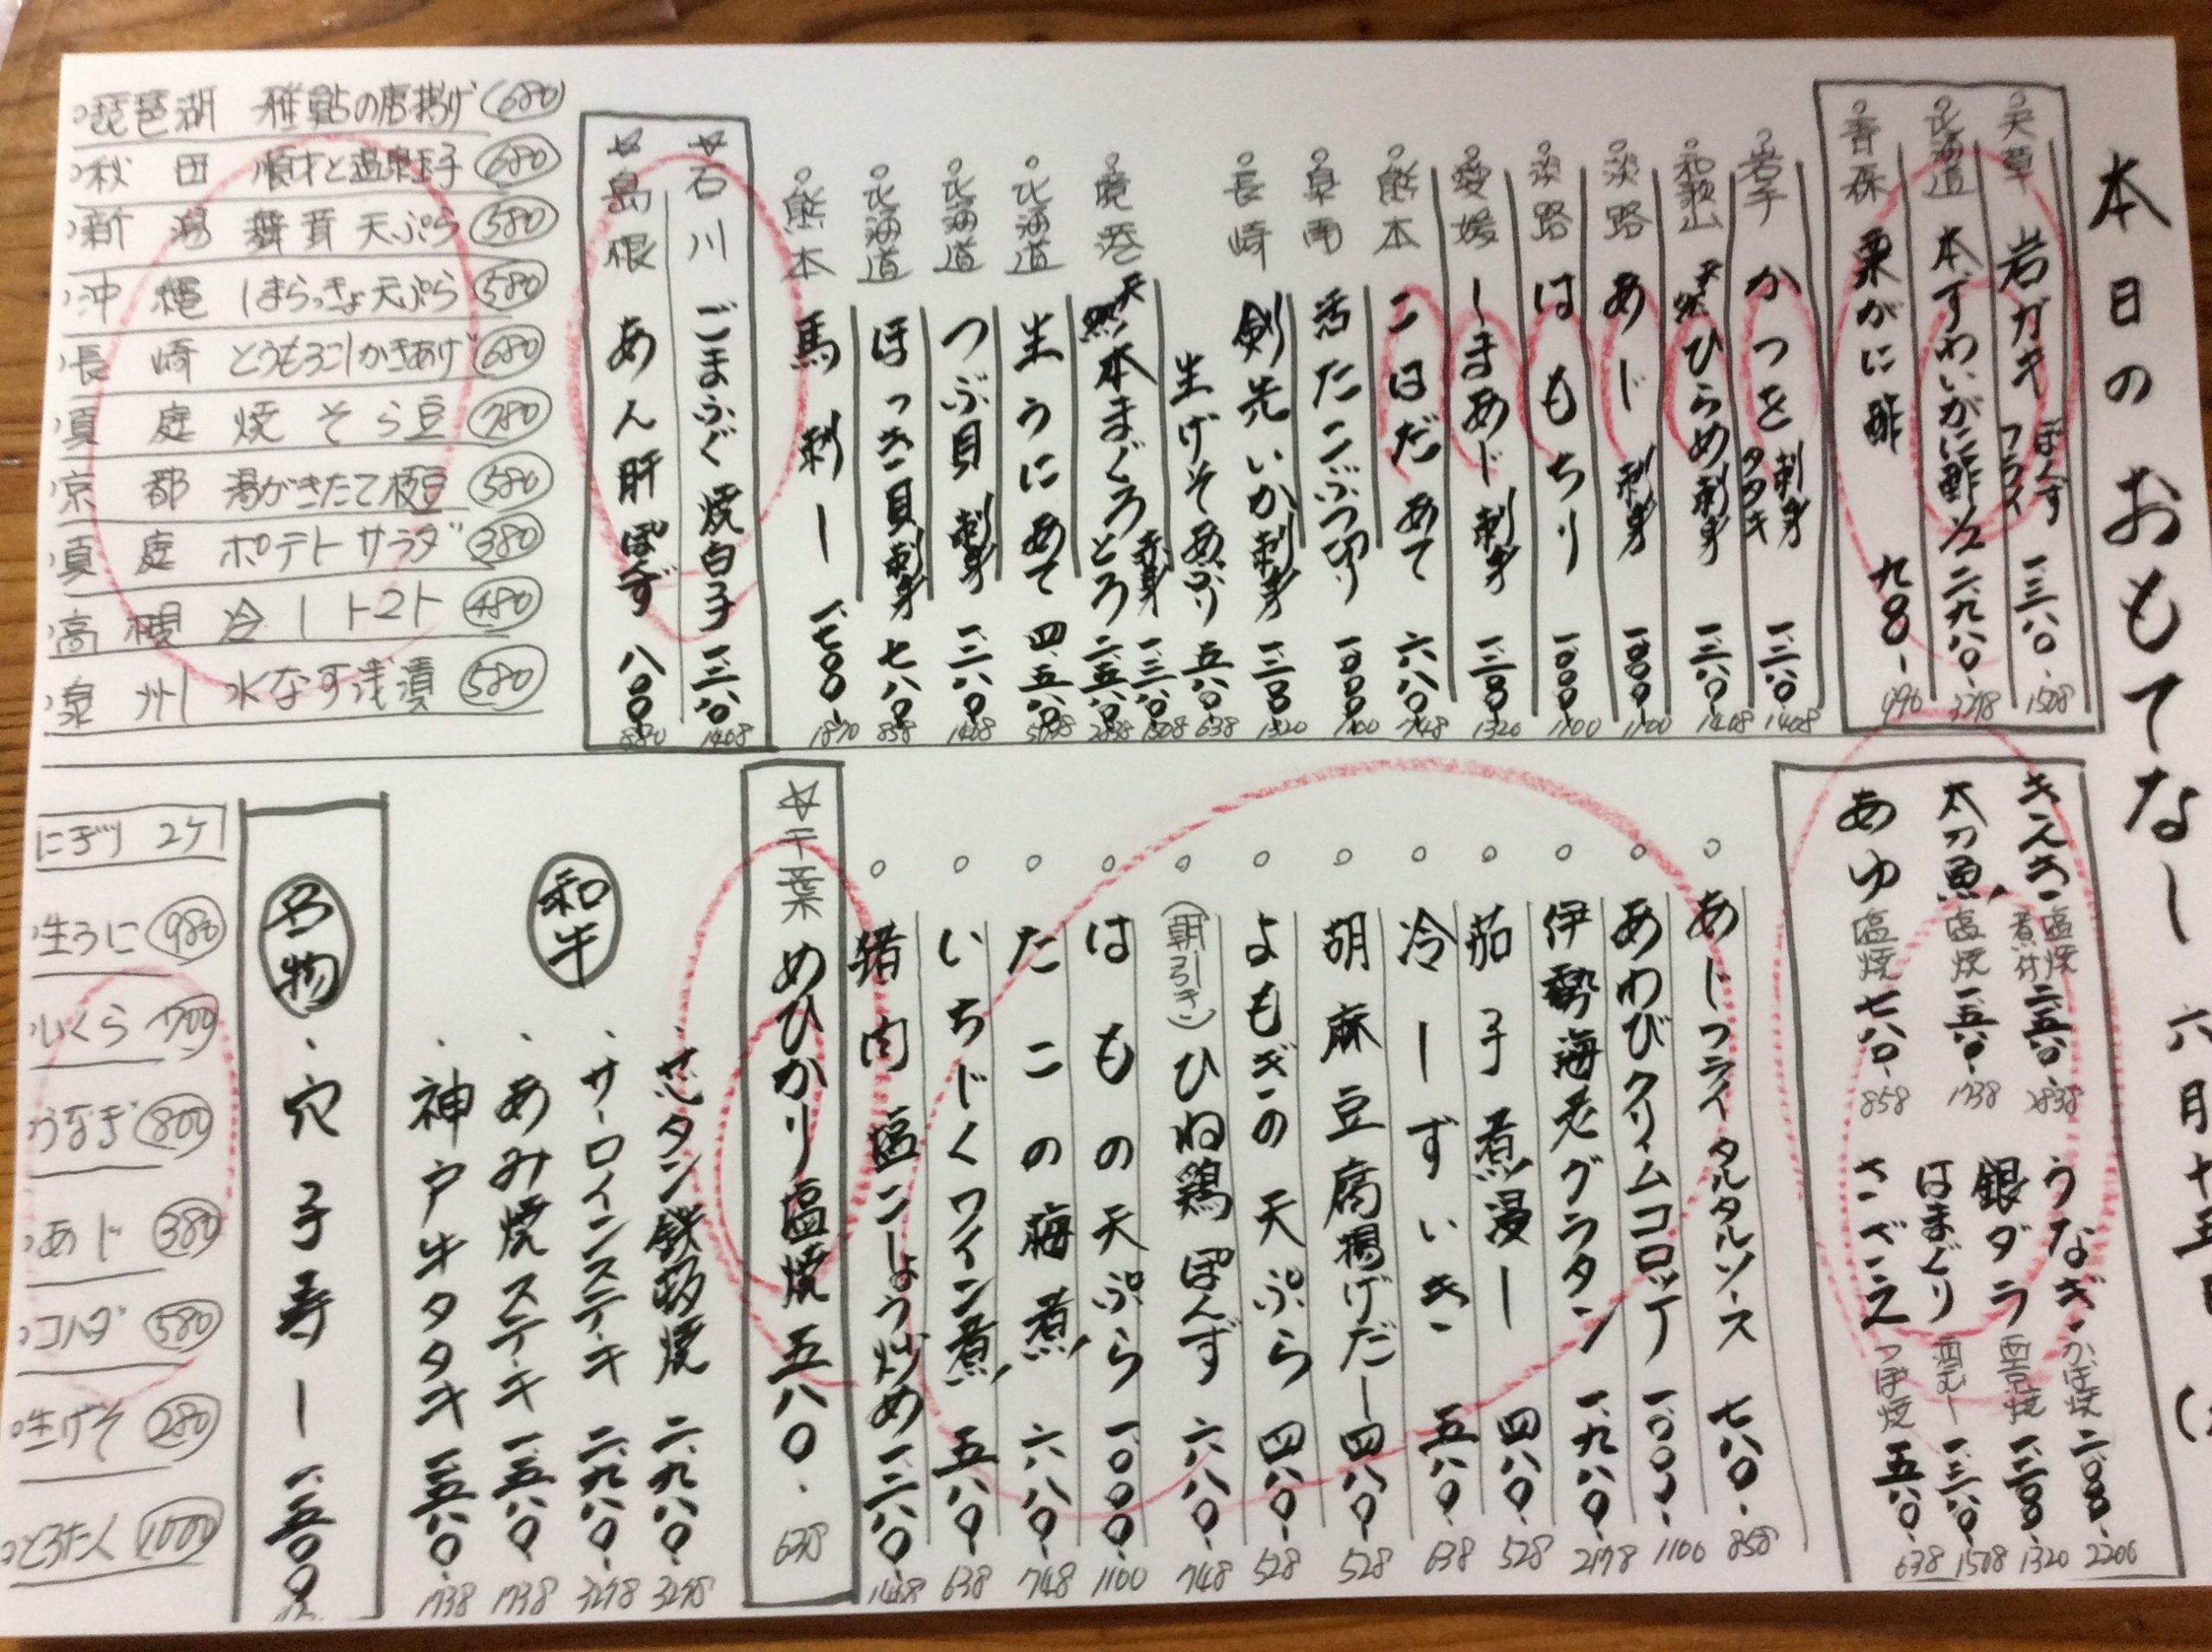 本日のおもてなし 六月十五日
天草 岩ガキ ぽんず フライ 一、三八〇- 1508
北海道 本ずわいがに酢 1/2 二、九八〇- 3278
香住 栗がに酢 九八-
岩手 かつを 刺身 タタキ 一、二八〇- 1408
和歌山 天然 ひらめ刺身 一、二八〇- 1408
淡路 あじ 刺身 一、〇〇〇- 1100
淡路 はもちり 一、〇〇〇- 1100
愛媛 しまあじ 刺身 一、二〇〇- 1320
熊本 こはだ あて 六八〇- 748
泉南 活たこぶつ切り 一、〇〇〇- 1100
長崎 剣先いか刺身 一、二〇〇- 1320
生げそ あぶり 五八〇- 638
境港 天然 本まぐろ 赤身 一、三八〇- 1508
とろ 二、五八〇- 2838
北海道 生うに あて 四、五八〇-
北海道 つぶ貝 刺身 一、二八〇- 1408
北海道 ほっき貝 刺身 七八〇- 858
熊本 馬刺し 一、七〇〇- 1870
☆石川 ごまふぐ 焼白子 一、二八〇- 1408
☆島根 あん肝 ぽんず 八〇〇- 880
琵琶湖 稚鮎の唐揚げ (680)
秋田 順才と温泉玉子 680
新潟 舞茸天ぷら 580
沖縄 しまらっきょ天ぷら 580
長崎 とうもろこしかきあげ 680
真庭 焼そら豆 280
京都 湯がきたて枝豆 580
真庭 ポテトサラダ 380
高槻 冷しトマト 480
泉州 水なす浅漬 580
きんき 塩焼 煮付 二、五八〇- 2838
太刀魚 塩焼 一、五八〇- 1738
あゆ 塩焼 七八〇- 858
うなぎ かば焼 二、〇〇〇- 2200
銀ダラ 西京焼 一、二〇〇- 1320
はまぐり 酒むし 一、三八〇- 1508
さざえ つぼ焼 五八〇- 638
あじフライ タルタルソース 七八〇- 858
あわびクリィムコロッケ 一、〇〇〇- 1100
伊勢海老グラタン 一、九八〇- 2178
茄子煮浸し 四八〇- 528
冷しずいき 五八〇- 638
胡麻豆腐揚げだし 四八〇- 528
よもぎの天ぷら 四八〇- 528
(朝引き)ひね鶏 ぽんず 六八〇- 748
はもの天ぷら 一、〇〇〇- 1100
たこの梅煮 六八〇- 748
いちじくワイン煮 五八〇- 638
猪肉 塩こしょう炒め 一、二八〇- 1408
☆千葉 めひかり塩焼 五八〇- 638
和牛
芯タン鉄板焼 二、九八〇- 3278
サーロインステーキ 二、九八〇- 3278
あみ焼ステーキ 一、五八〇- 1738
神戸牛タタキ 一、五八〇- 1738
名物
穴子寿し 一、五〇〇
にぎり 2ケ
生うに 980
いくら 700
うなぎ 800
あじ 380
コハダ 580
生げそ 280
とろたく 1000